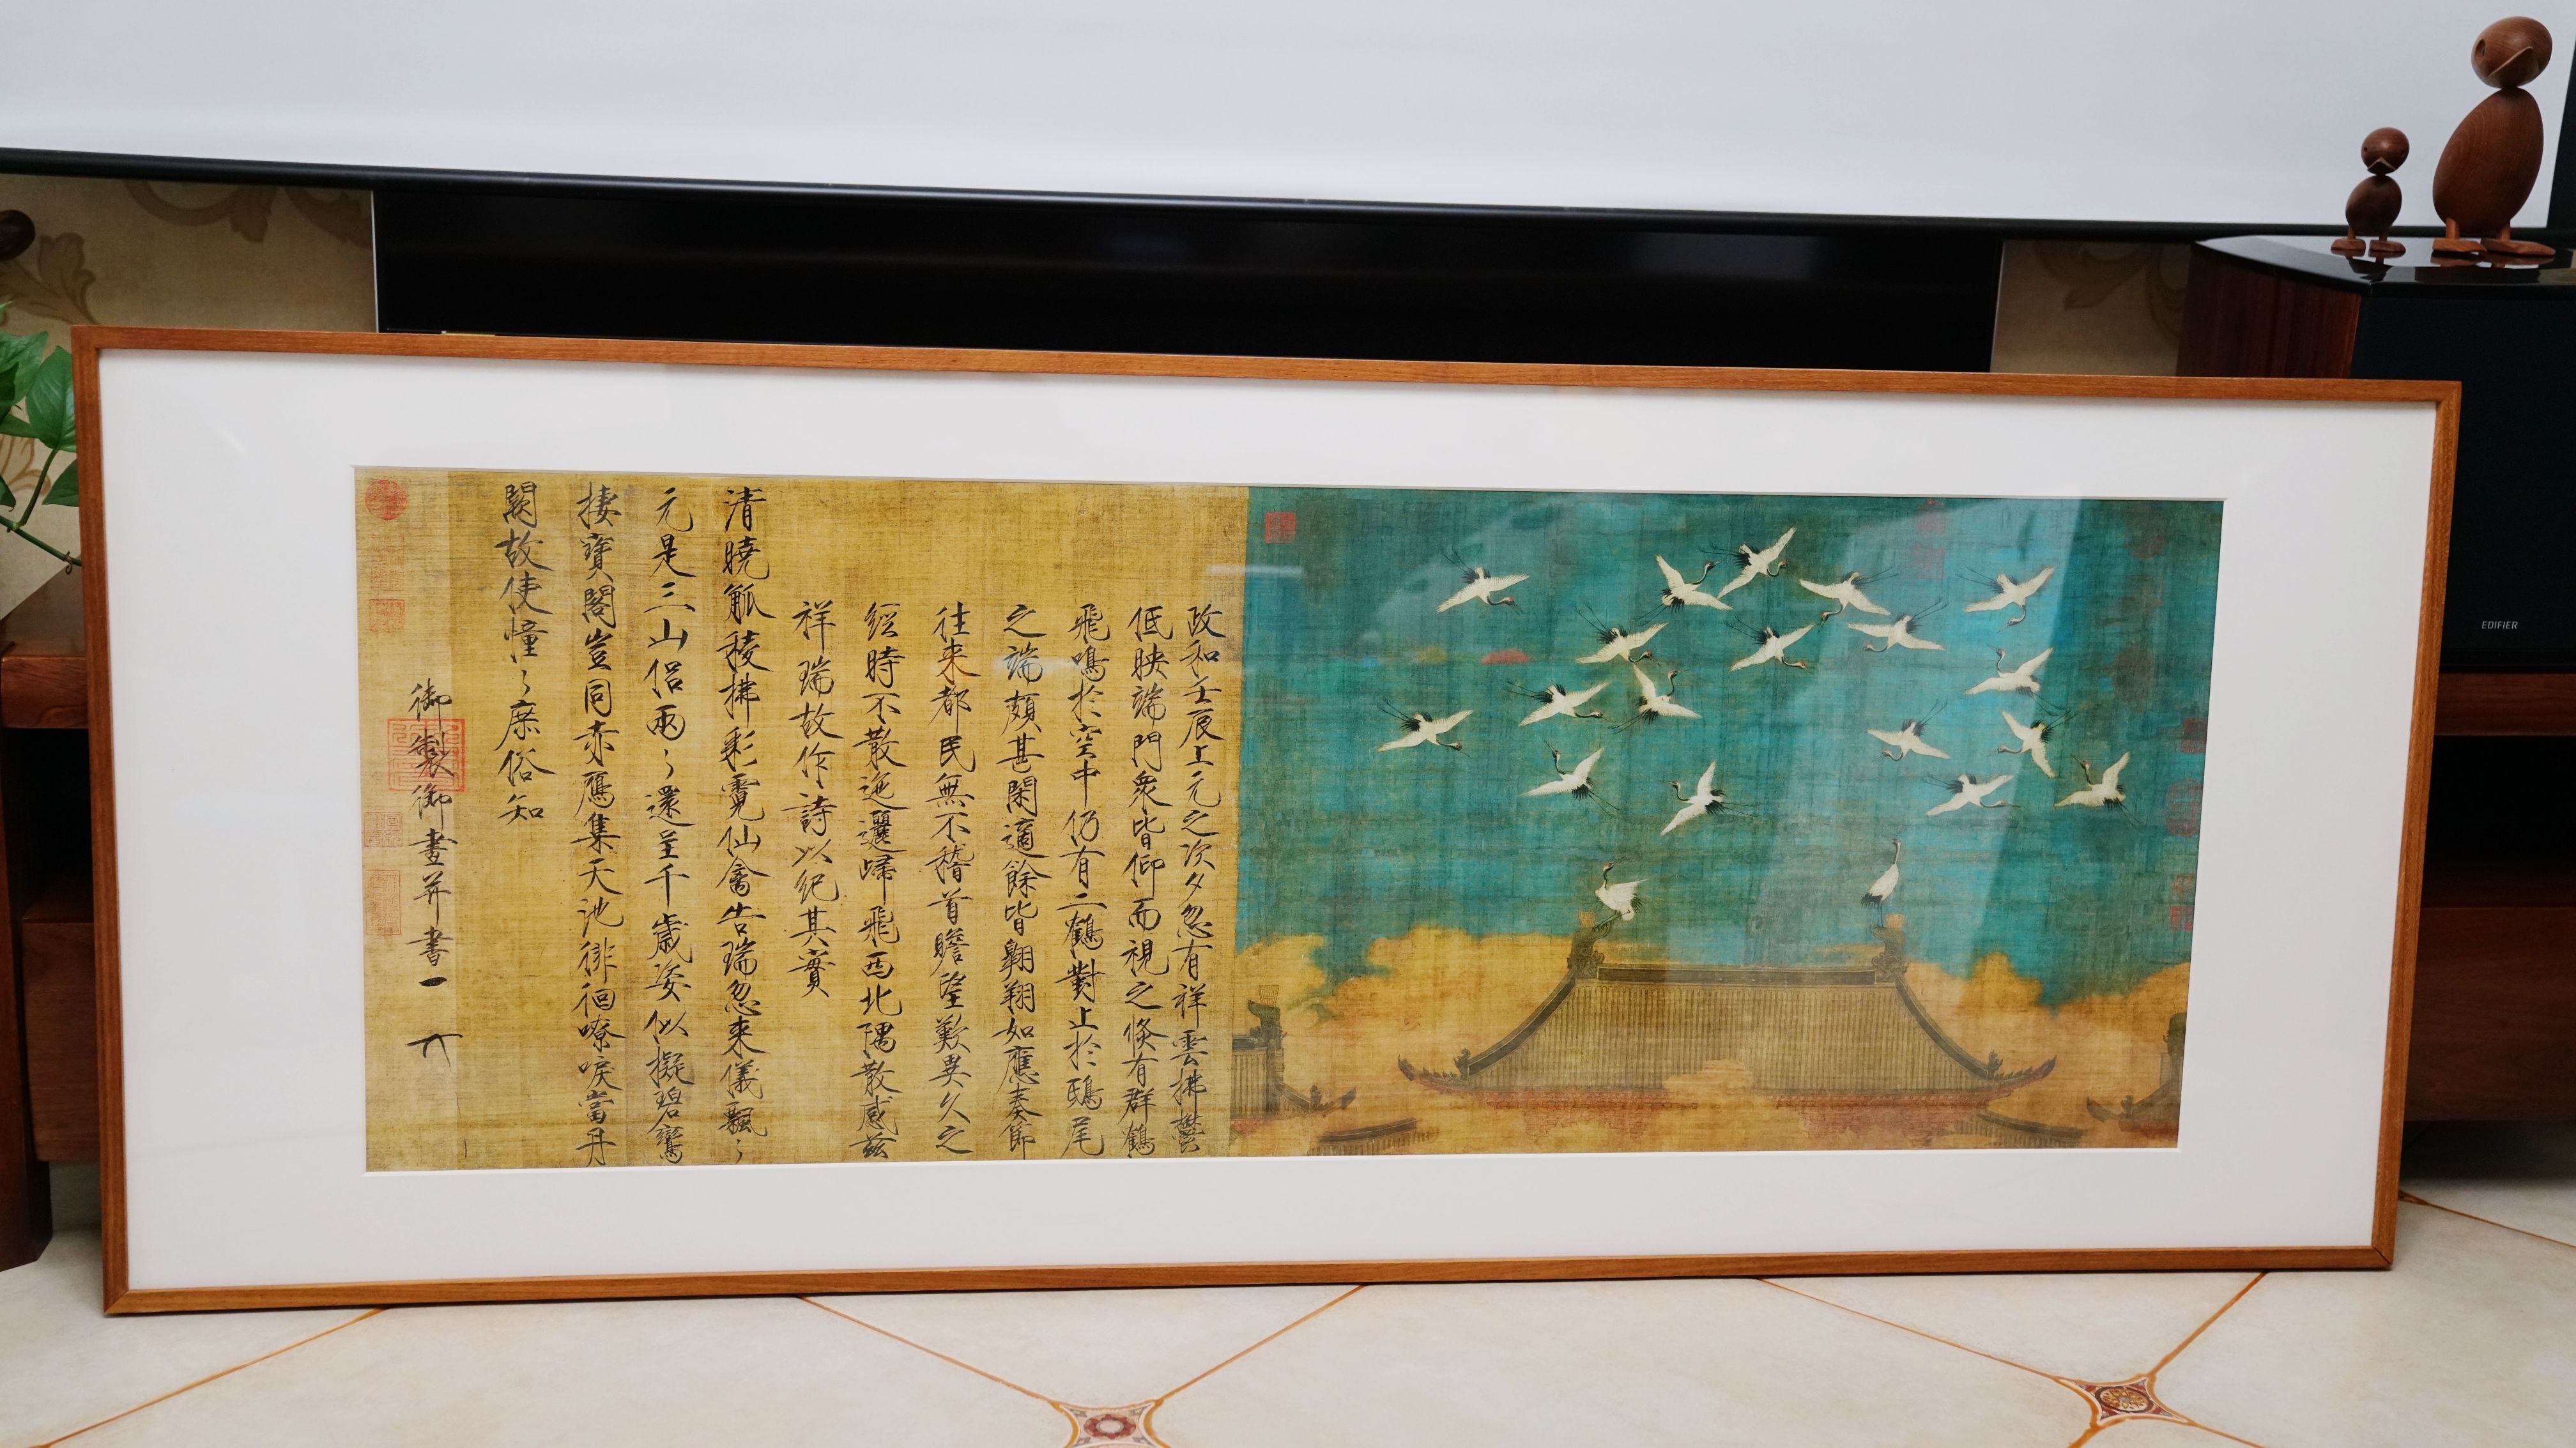 政和壬辰上元之次夕忽有祥雲拂鬱
低映端門衆皆仰而視之倐有群鶴
飛鳴於空中仍有二鶴對止於鴟尾
之端頗甚閑適餘皆翱翔如應奏節
往来都民無不稽首瞻望歎異久之
經時不散迤邐歸飛西北隅散感兹
祥瑞故作詩以紀其實
清曉觚稜拂彩霓仙禽告瑞忽來儀飄〻
元是三山侣兩〻還呈千歲姿似擬碧鸞
棲寶閣豈同赤鴈集天池徘徊嘹唳當丹
闕故使憧〻庶俗知
御製御畫并書
EDIFIER